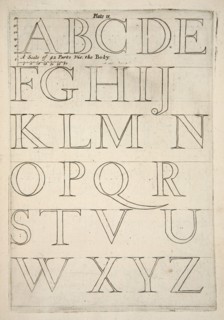 Plate 11
A B C D E
A Scale of 42 Parts Viz. the Body.
F G H I J
K L M N
O P Q R
S T V U
W X Y Z